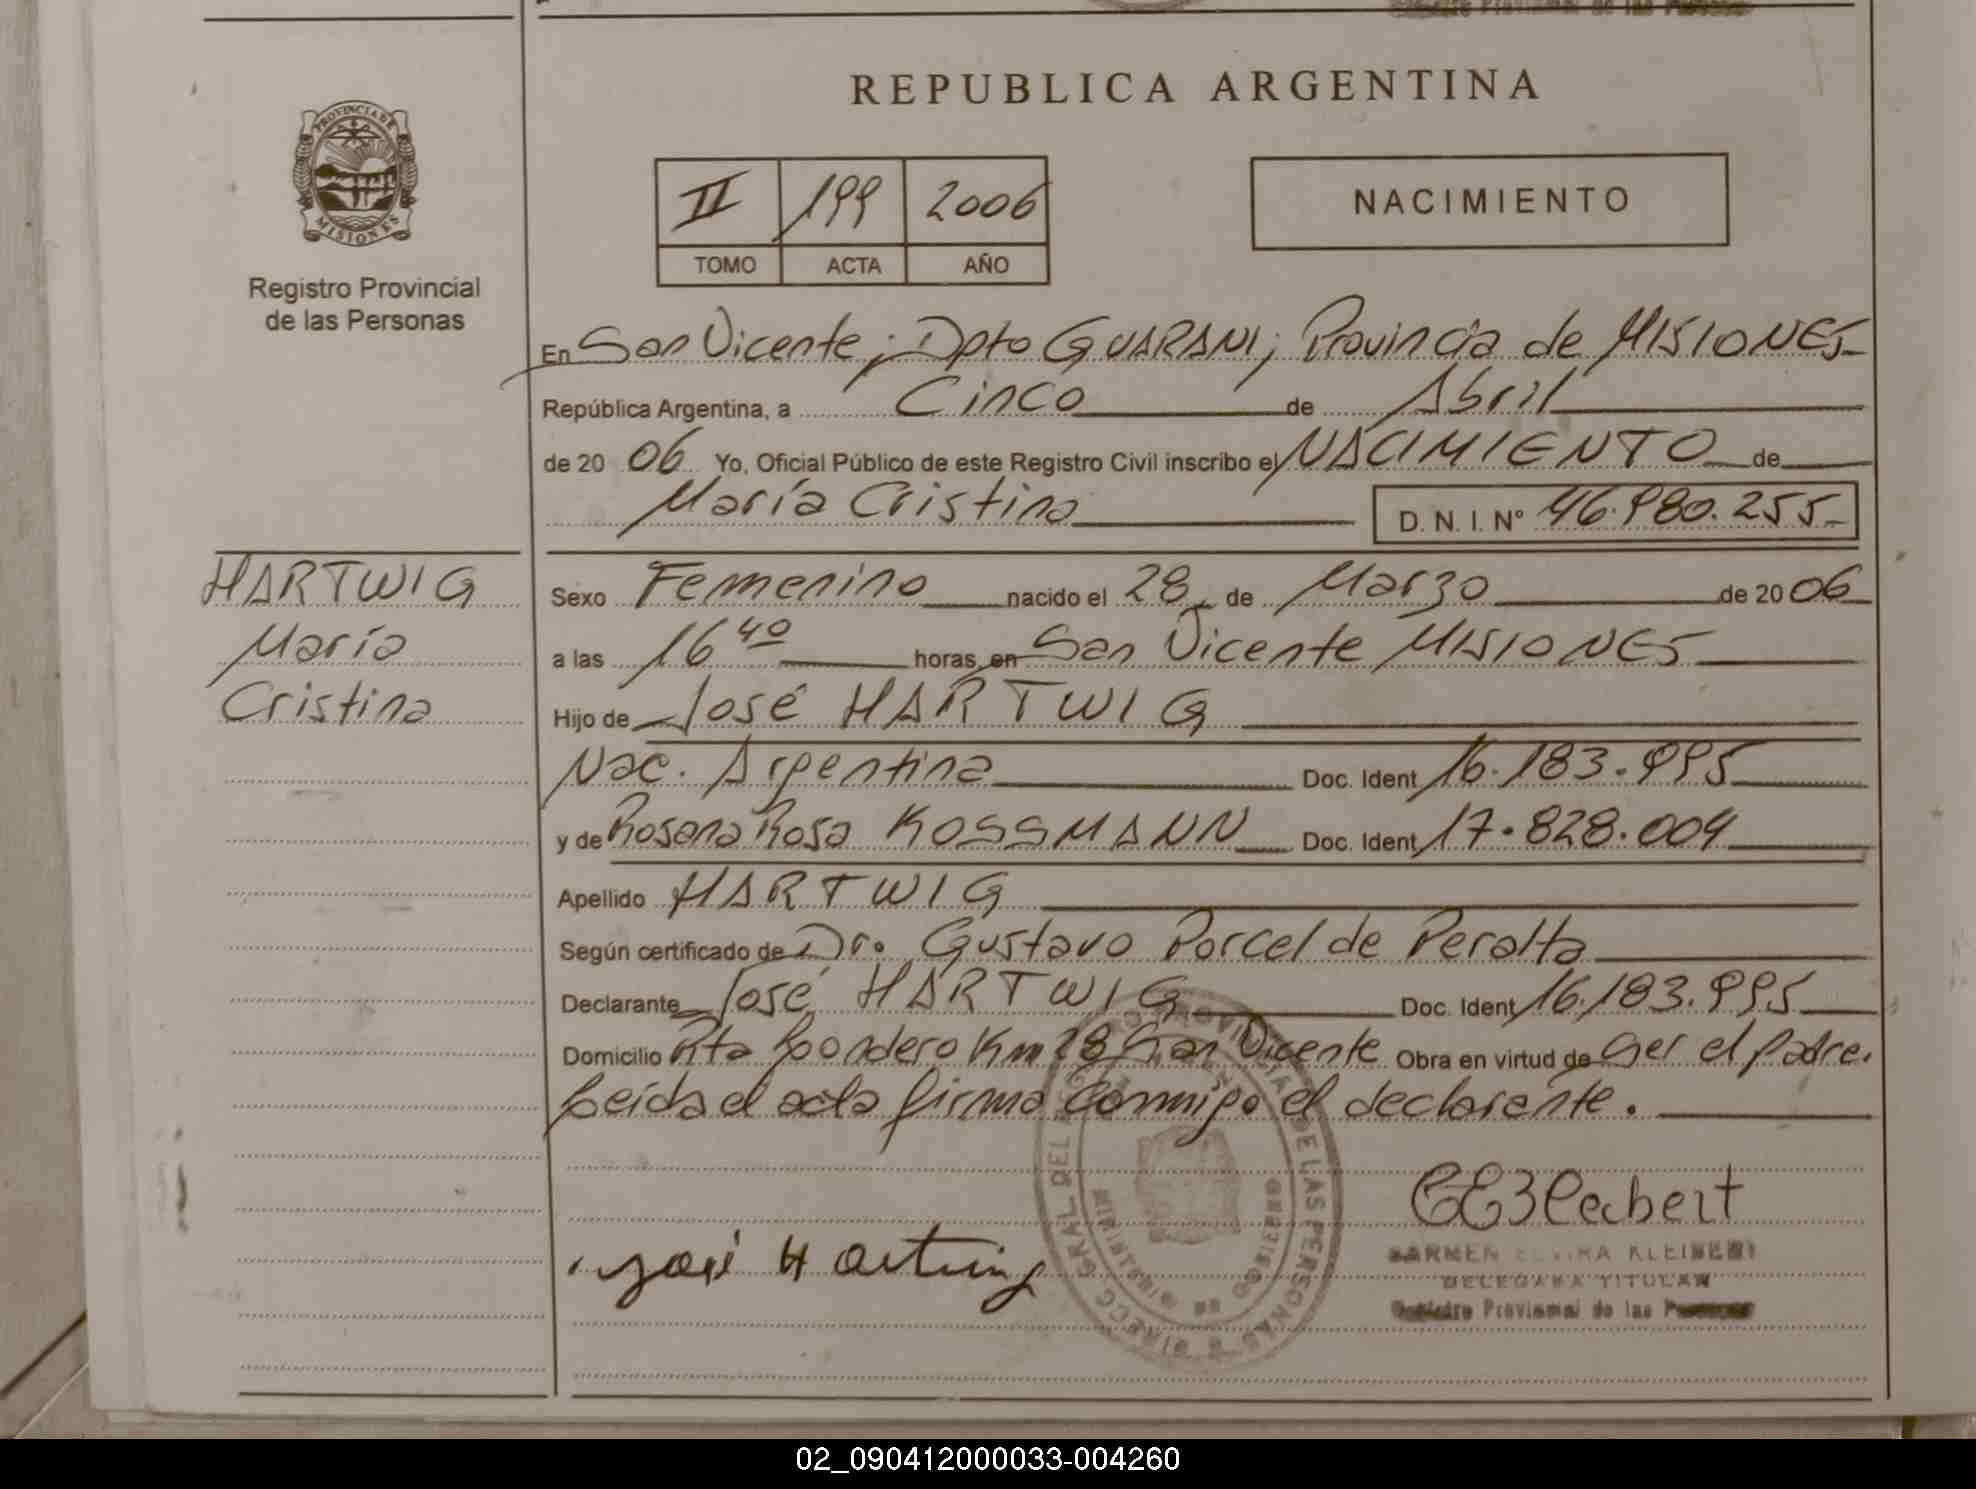 REPUBLICA ARGENTINA
PROVINCIA DE
MISIONES
Registro Provincial
de las Personas
II 199 2006
TOMO ACTA AÑO
NACIMIENTO
En San Vicente; Dpto GUARANI; Provincia de MISIONES
República Argentina, a Cinco de Abril
de 20 06 Yo, Oficial Público de este Registro Civil inscribo el NACIMIENTO de
María Cristina D. N. I. Nº 46.980.255
HARTWIG
María
Cristina
Sexo Femenino nacido el 28 de Marzo de 20 06
a las 16 40 horas, en San Vicente MISIONES
Hijo de José HARTWIG
Nac. Argentina Doc. Ident 16.183.995
y de Rosana Rosa KOSSMANN Doc. Ident 17.828.004
Apellido HARTWIG
Según certificado de Dr. Gustavo Porcel de Peralta
Declarante José HARTWIG Doc. Ident 16.183.995
Domicilio Rta Km 28 San Vicente Obra en virtud de Ser el padre.
Leída el acta firma conmigo el declarante.
José Hartwig
CARMEN ELVIRA KLEIBERT
DELEGADA TITULAR
Registro Provincial de las Personas
02_090412000033-004260